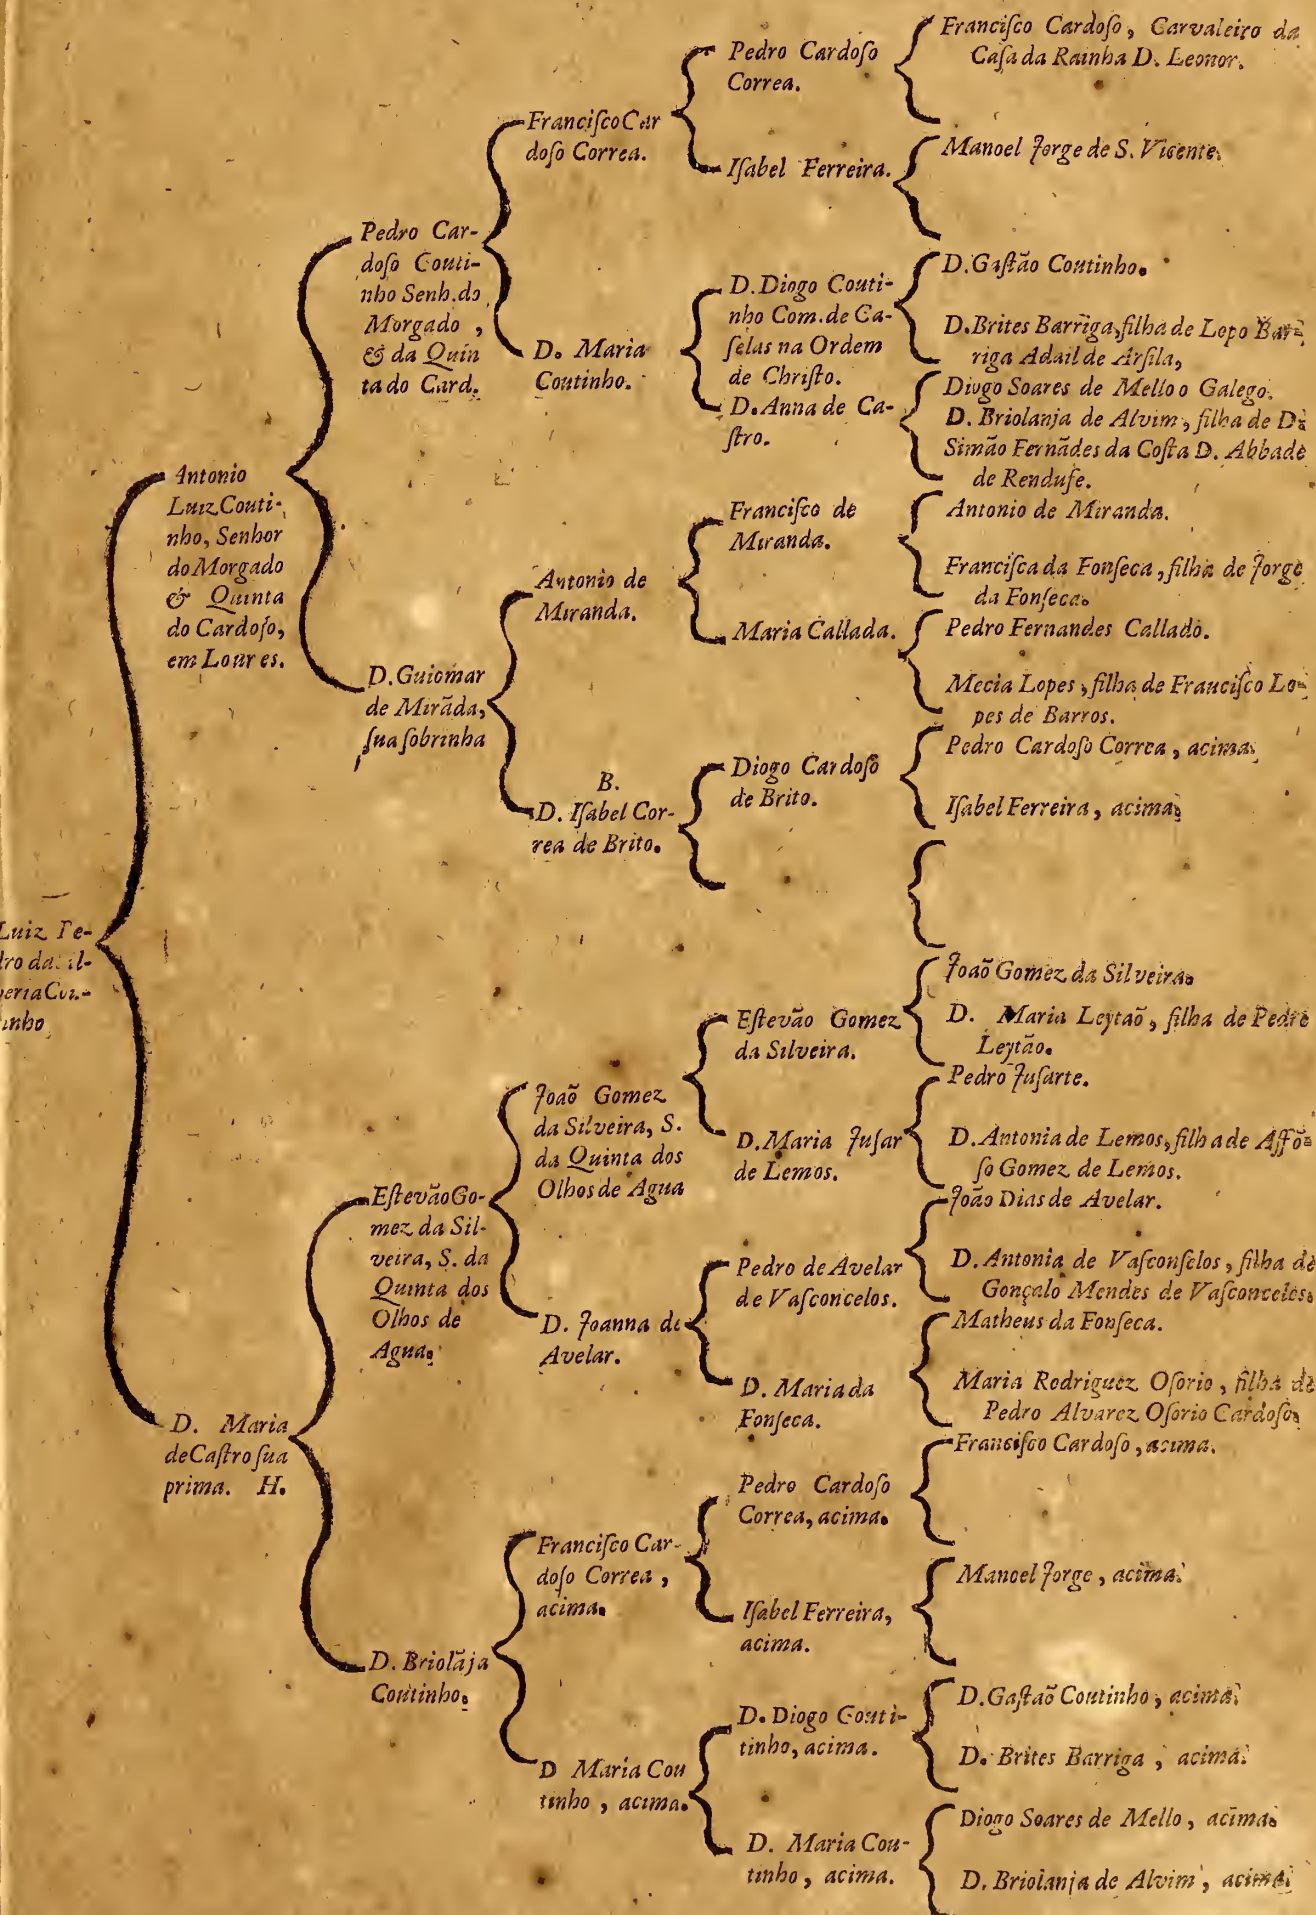 Luiz Pe-
dro da
inho
Antonio
Luiz Couti-
nho, Senhor
do Morgado
& Quinta
do Cardoſo,
em Loures.
D. Maria
de Caſtro ſua
prima. H.
Pedro Car-
doſo Couti-
nho Senh. do
Morgado,
& da Quin
ta do Card.
D. Guiomar
de Mirãda,
ſua ſobrinha
Eſtevão Go-
mez da Sil-
veira, S. da
Quinta dos
Olhos de
Agua.
D. Briolãja
Coutinho.
Franciſco Car
doſo Correa.
D. Maria
Coutinho.
Antonio de
Miranda.
B.
D. Iſabel Cor-
rea de Brito.
Joaõ Gomez
da Silveira, S.
da Quinta dos
Olhos de Agua
D. Joanna de
Avelar.
Franciſco Car-
doſo Correa,
acima.
D Maria Cou
tinho, acima.
Pedro Cardoſo
Correa.
Iſabel Ferreira.
D. Diogo Couti-
nho Com. de Ca-
ſelas na Ordem
de Chriſto.
D. Anna de Ca-
ſtro.
Franciſco de
Miranda.
Maria Callada.
Diogo Cardoſo
de Brito.
Eſtevão Gomez
da Silveira.
D. Maria Juſar
de Lemos.
Pedro de Avelar
de Vaſconcelos.
D. Maria da
Fonſeca.
Pedro Cardoſo
Correa, acima.
Iſabel Ferreira,
acima.
D. Diogo Couti-
tinho, acima.
D. Maria Cou-
tinho, acima.
Franciſco Cardoſo, Carvaleiro da
Caſa da Rainha D. Leonor.
Manoel Jorge de S. Vicente.
D. Gaſtão Coutinho.
D. Brites Barriga, filha de Lopo Bar-
riga Adail de Arſila,
Diogo Soares de Mello o Galego.
D. Briolanja de Alvim, filha de D.
Simão Fernãdes da Coſta D. Abbade
de Rendufe.
Antonio de Miranda.
Franciſca da Fonſeca, filha de Jorge
da Fonſeca.
Pedro Fernandes Callado.
Mecia Lopes, filha de Franciſco Lo-
pes de Barros.
Pedro Cardoſo Correa, acima.
Iſabel Ferreira, acima.
Joaõ Gomez da Silveira.
D. Maria Leytaõ, filha de Pedro
Leytão.
Pedro Juſarte.
D. Antonia de Lemos, filha de Affõ-
ſo Gomez de Lemos.
João Dias de Avelar.
D. Antonia de Vaſconſelos, filha de
Gonçalo Mendes de Vaſconcelos.
Matheus da Fonſeca.
Maria Rodriguez Oſorio, filha de
Pedro Alvarez Oſorio Cardoſo.
Franciſco Cardoſo, acima.
Manoel Jorge, acima.
D. Gaſtaõ Coutinho, acima.
D. Brites Barriga, acima.
Diogo Soares de Mello, acima.
D. Briolanja de Alvim, acima.